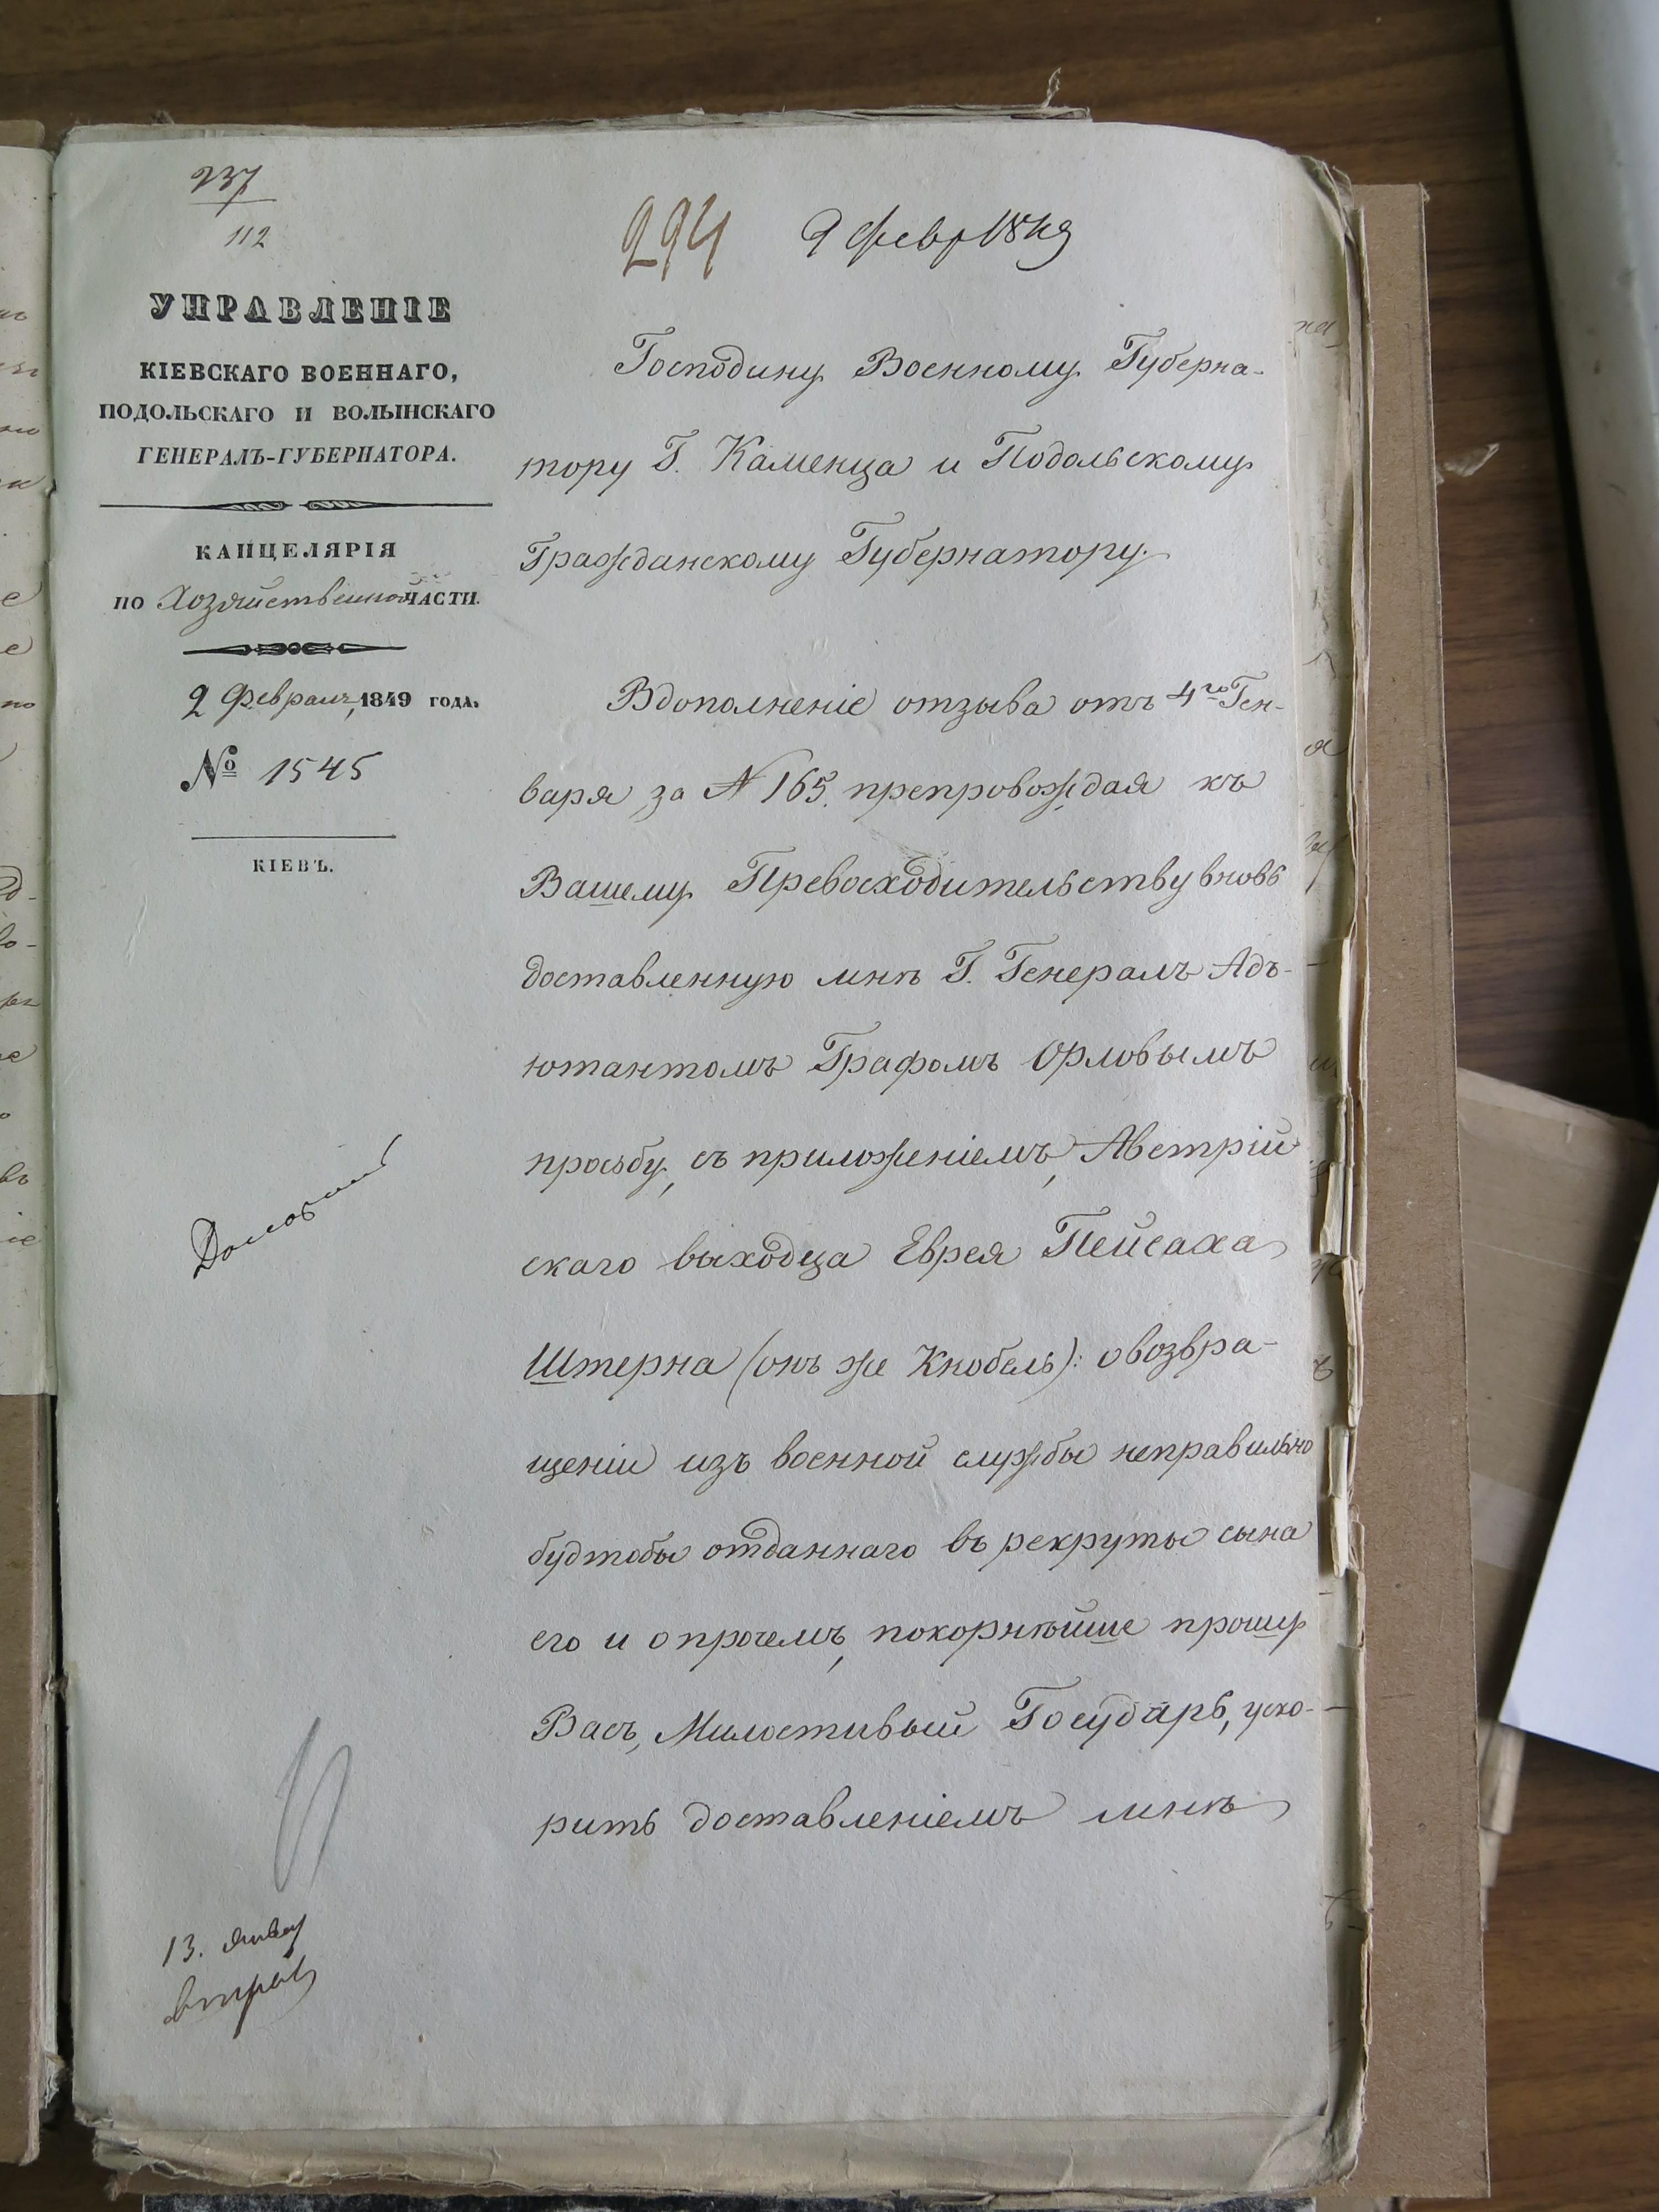 237
112
294 9 февр 1849
УПРАВЛЕНІЕ
КІЕВСКАГО ВОЕННАГО,
ПОДОЛЬСКАГО И ВОЛЫНСКАГО
ГЕНЕРАЛЪ-ГУБЕРНАТОРА.
КАНЦЕЛЯРІЯ
ПО Хозяйственной ЧАСТИ.
2 Февраля, 1849 ГОДА.
№ 1545
КІЕВЪ.
Господину Военному Губерна-
тору Г. Каменца и Подольскому
Гражданскому Губернатору.
Вдополненіе отзыва отъ 4го Ген-
варя за № 165. препровождая къ
Вашему Превосходительству вновь
доставленную мнѣ Г. Генералъ Адъ-
ютантомъ Графомъ Орловымъ
просьбу, съ приложеніемъ, Австрій
скаго выходца Еврея Пейсаха
Штерна (онъ же Кнобель): овозвра-
щеніи изъ военной службы неправильно
будтобы отданнаго въ рекруты сына
его и опрочемъ, покорнѣйше прошу
Васъ, Милостивый Государь, уско-
рить доставленіемъ мнѣ
13. янва